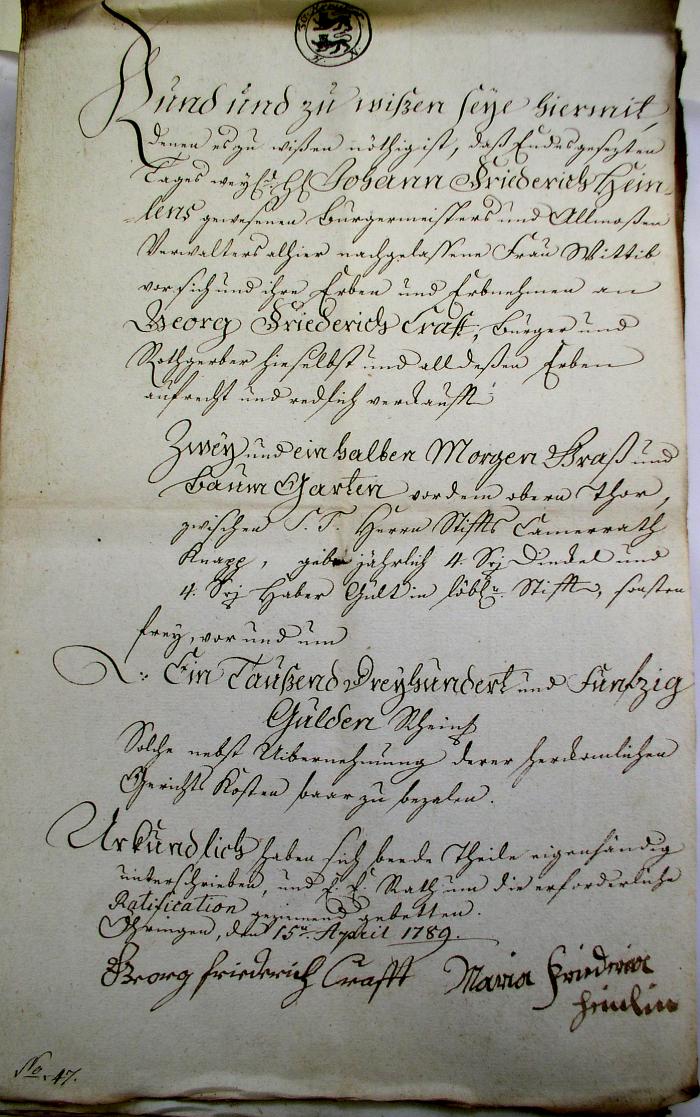 Kund und zu wißen seye hiermit,
denen es zu wißen nöthig ist, daß Endesgesezten
Tages weyl. H. Johann Friederich Hein-
lens gewesenen Burgermeisters und Allmoßen
Verwalters alhier nachgelassene Frau Wittib
vor sich und ihre Erben und Erbnehmen an
Georg Friederich Crafft, Burger und
Rothgerber hieselbst und all deßen Erben
aufrecht und redlich verkaufft:
Zwey und ein halben Morgen Graß und
Baum Garten vor dem obern Thor,
zwischen S. T. Herrn Stiffts Camerrath
Knapp, gebe jährlich 4. Srj Dinckel und
4. Srj Haber Gült in löbl. Stifft, sonsten
frey, vor und um
Ein Taußend Dreyhundert und Funfzig
Gulden Rheinl.
Solche nebst Uibernehmung derer herkomlichen
Gerichts Kosten baar zu bezalen.
Urkundlich haben sich beede Theile eigenhändig
unterschrieben, und E. E. Rath um die erforderliche
Ratification geziemend gebetten.
Öhringen, den 15n. April 1789.
Georg friederich Crafft Maria Friederica
heinlin
No. 47.